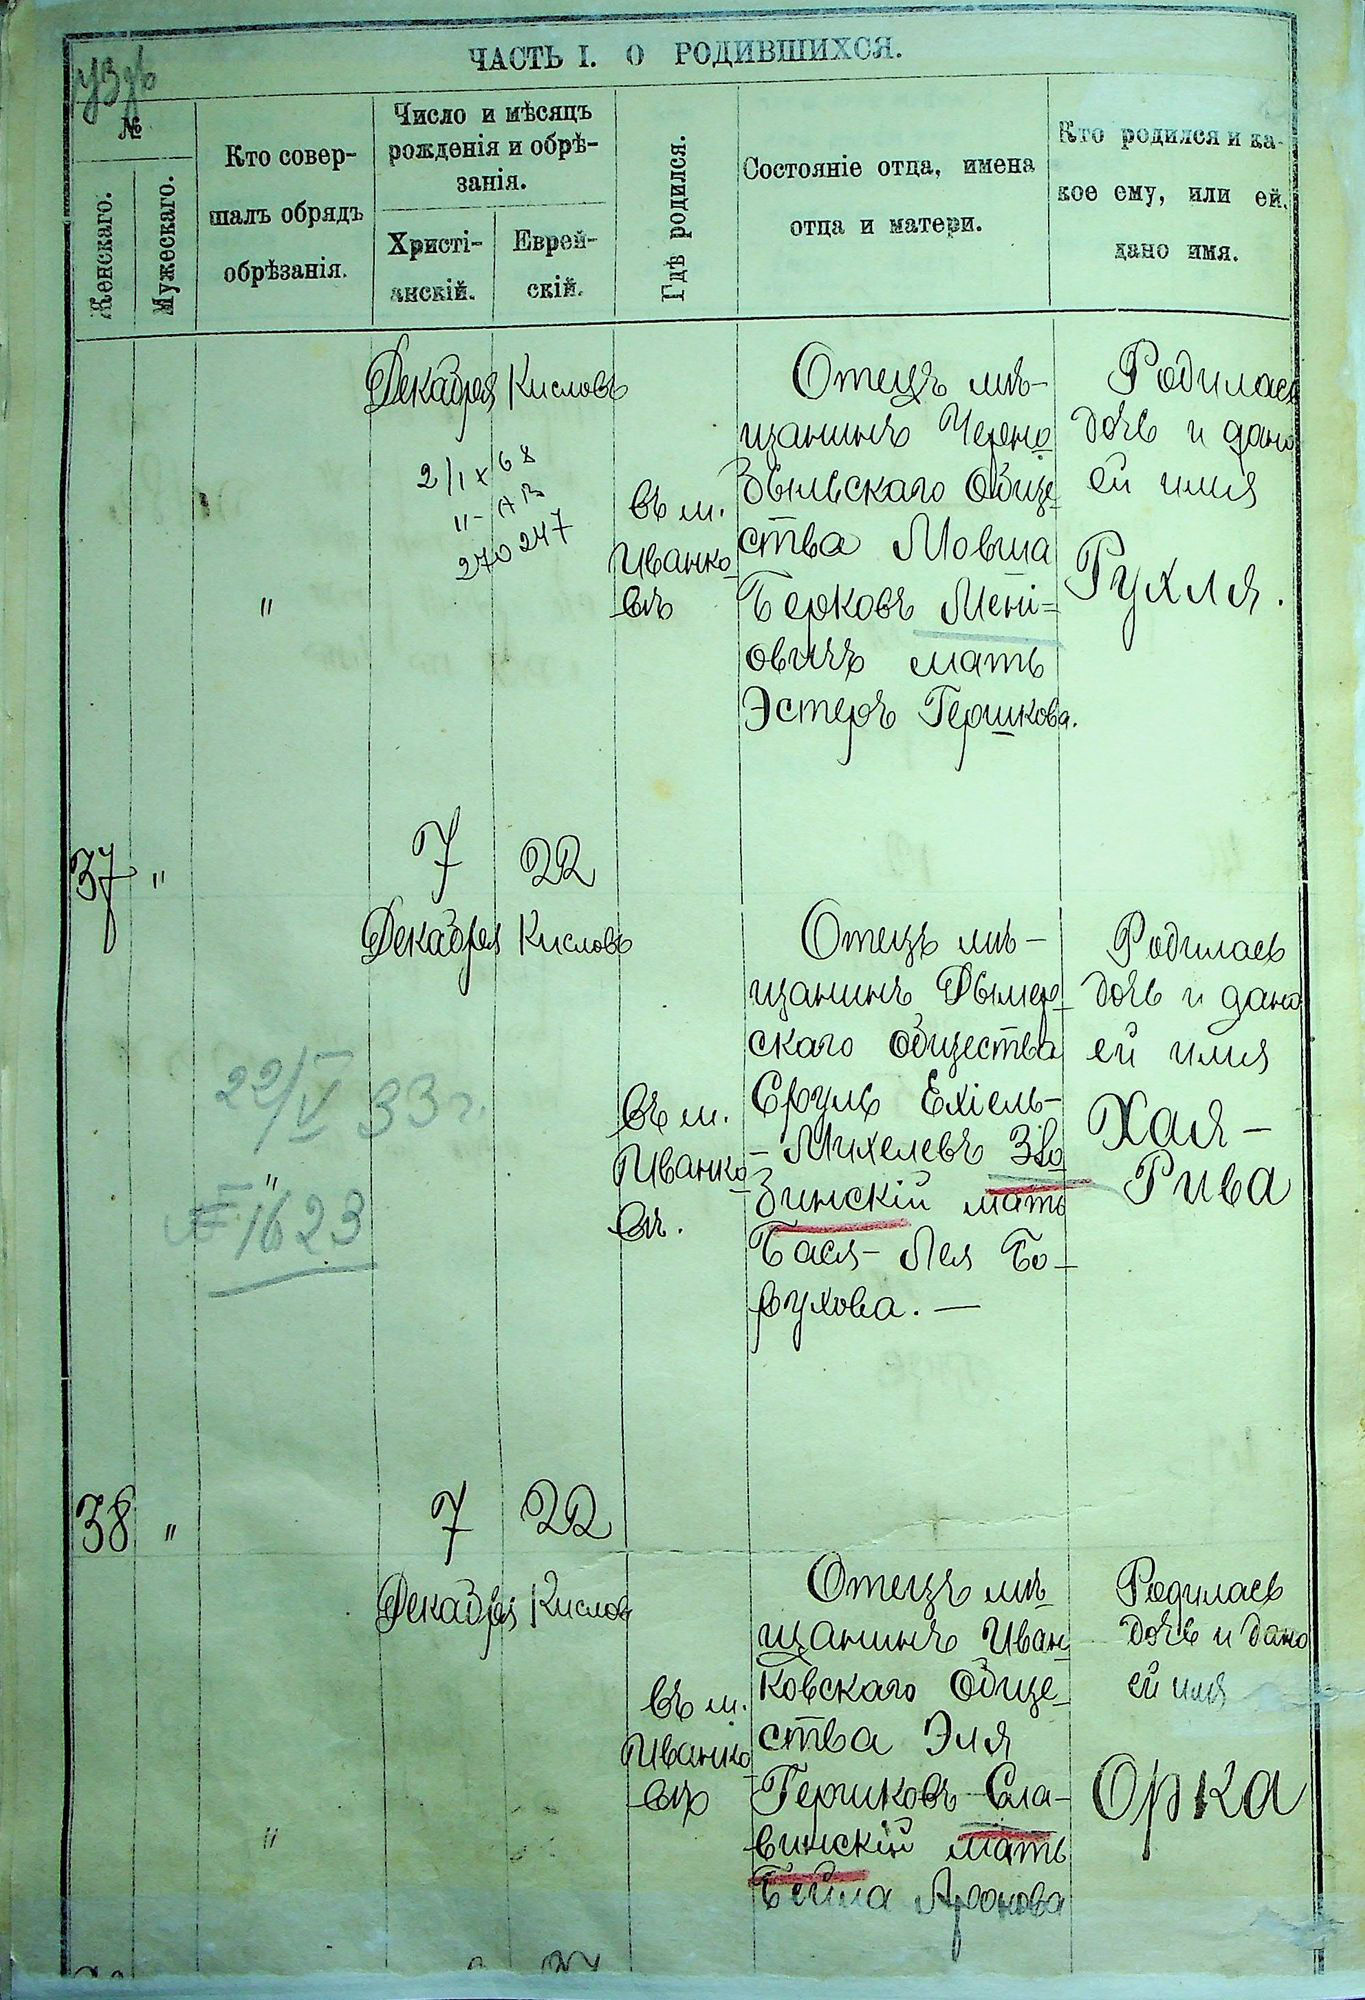 ЧАСТЬ I. О РОДИВШИХСЯ.
№
Женскаго.
Мужескаго.
Кто совер-
шалъ обрядъ
обрѣзанія.
Число и мѣсяцъ
рожденія и обрѣ-
занія.
Христі-
анскій.
Еврей-
скій.
Гдѣ родился.
Состояніе отца, имена
отца и матери.
Кто родился и ка-
кое ему, или ей,
дано имя.
Декабря
Кисловъ
2/IX 68
270247
"
въ м.
Иванко-
вѣ
Отецъ мѣ-
щанинъ Черно
быльскаго обще-
ства Мовша
Берковъ Мені=
овичъ мать
Эстеръ Гершкова.
Родилась
дочь и дано
ей имя
Рухля.
37 "
7
22
Декабря
Кисловъ
22/V 33 г.
"
№ 1623
въ м.
Иванко-
вѣ.
Отецъ мѣ-
щанинъ Дымер-
скаго общества
Сруль Ехіель-
-Михелевъ Зло
зинскій мать
Бася-Лея Бо-
рухова. —
Родилась
дочь и дано
ей имя
Хая-
Рива
38 "
7
22
Декабря
Кислов
"
въ м.
Иванко-
вѣ
Отецъ мѣ-
щанинъ Иван-
ковскаго обще-
ства Эля
Гершковъ Сла-
винскій мать
Бейла Аронова
Родилась
дочь и дано
ей имя
Орка